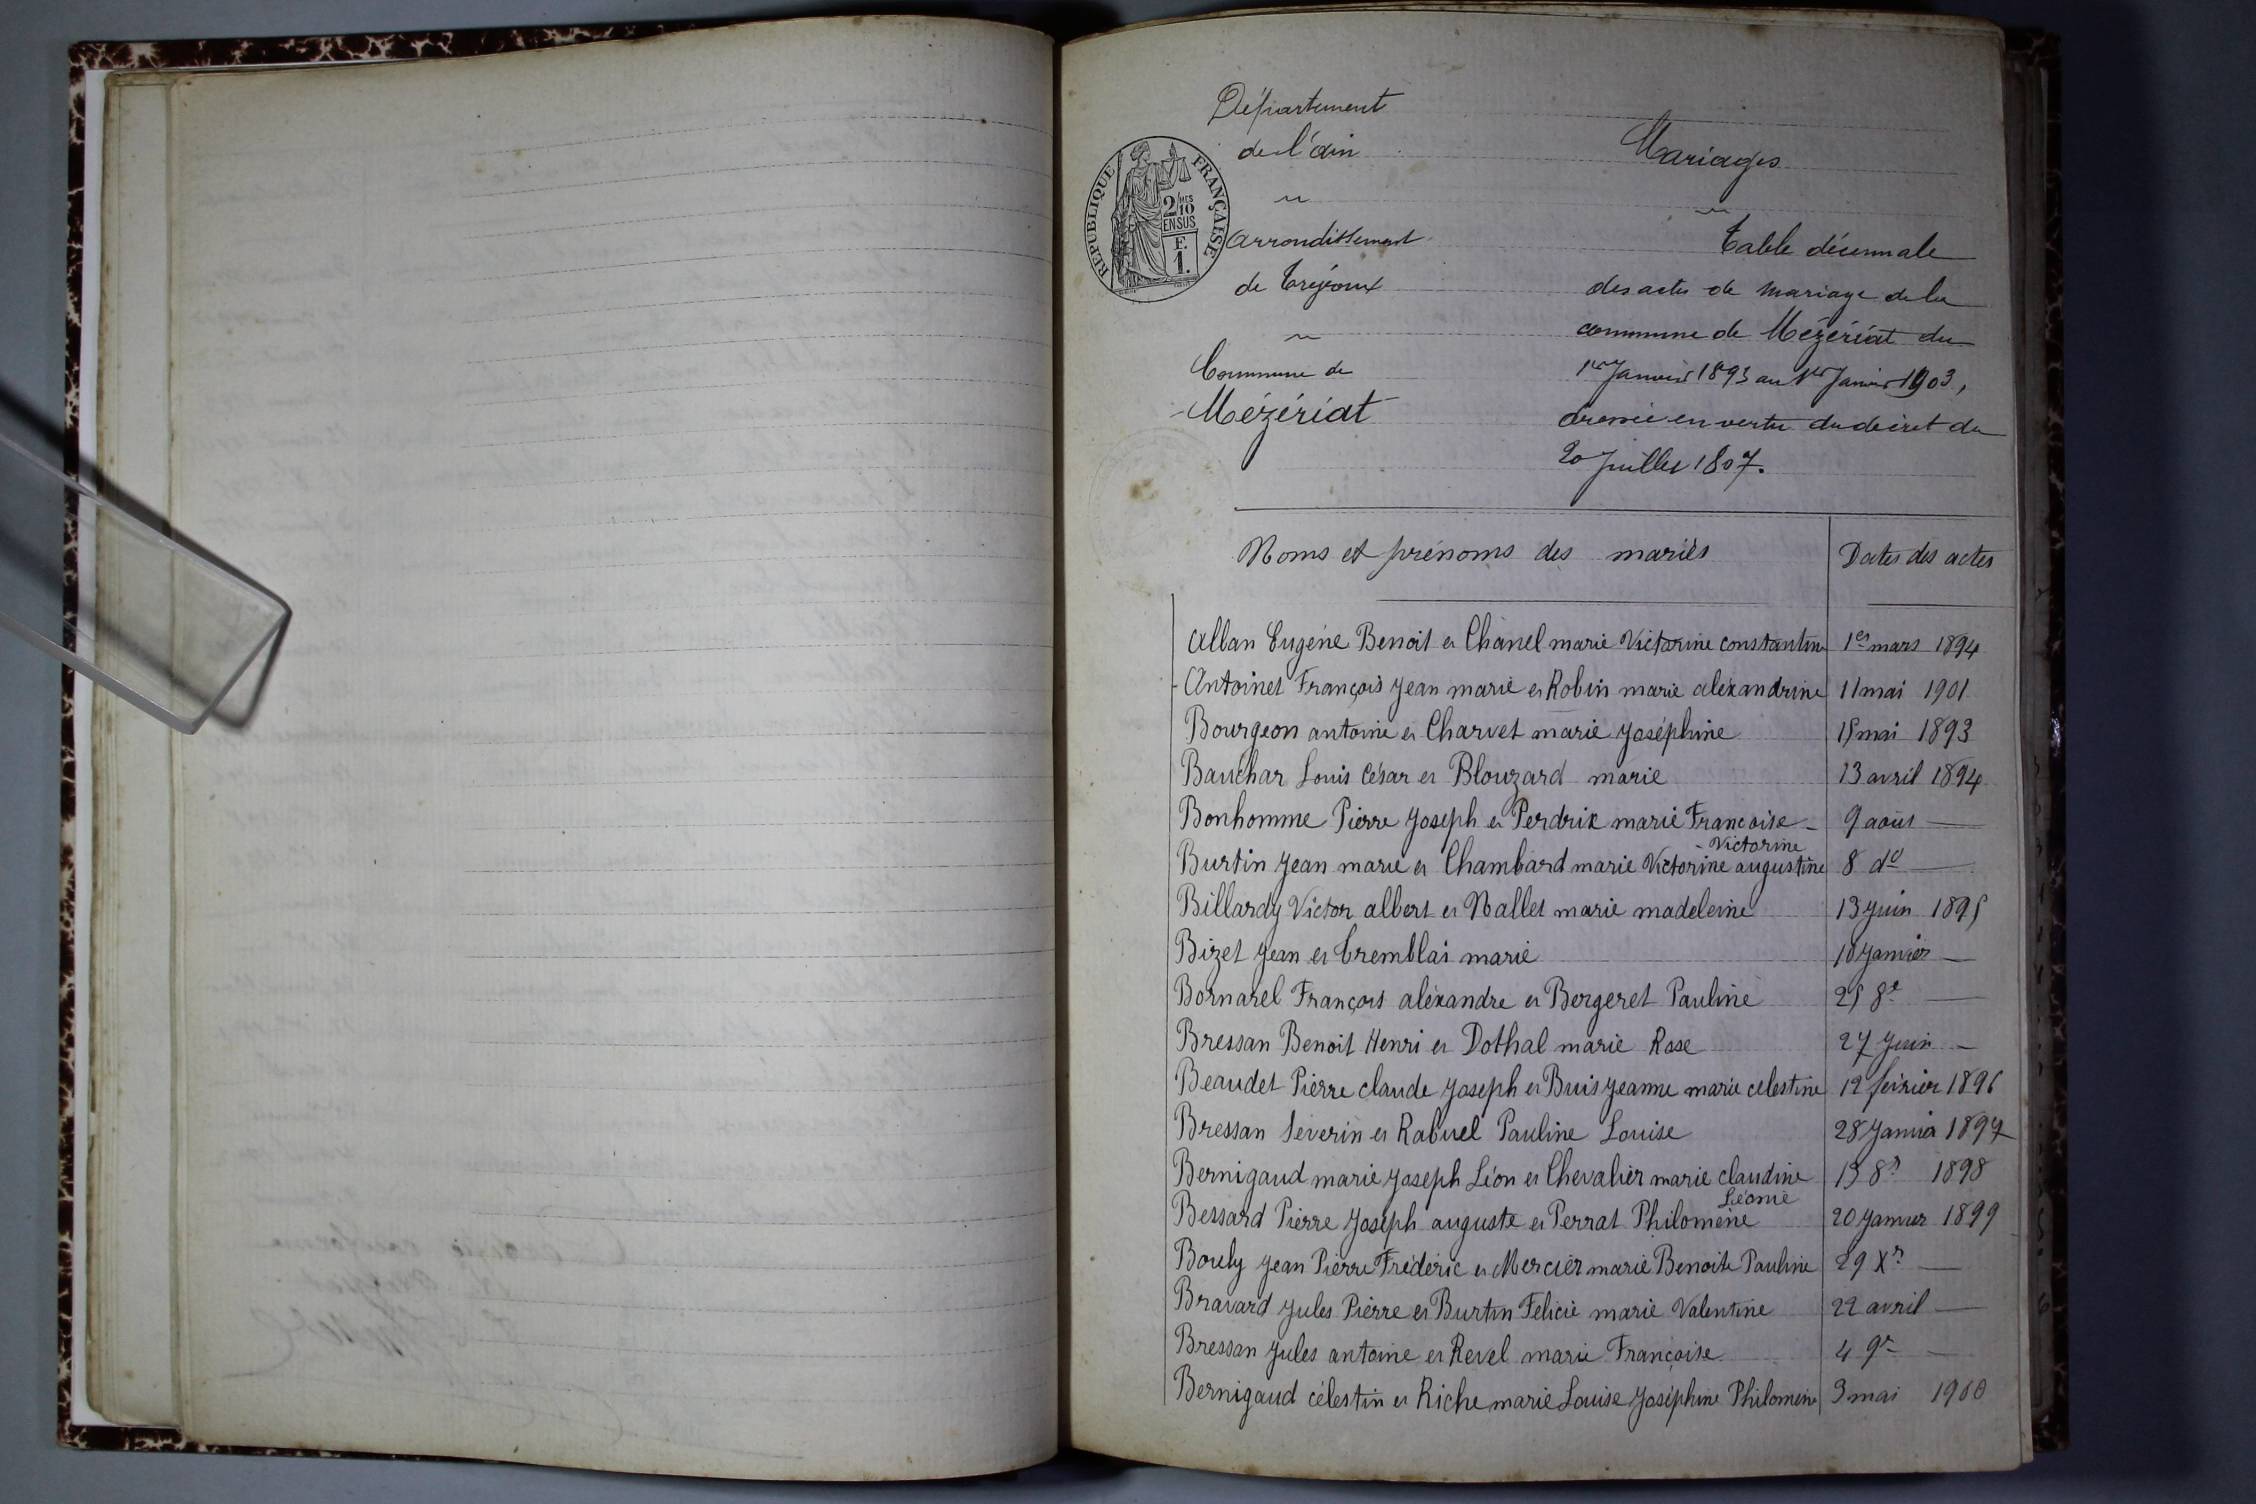 Département
de l'ain
REPUBLIQUE FRANÇAISE
2/10 MES
EN SUS
F.
1.
arrondissement
de Trévoux
Commune de
Mézériat
Mariages
Table décennale
des actes de mariage de la
commune de Mézériat du
1er Janvier 1893 au 1er Janvier 1903,
dressée en vertu du décret du
20 Juillet 1807.
Noms et prénoms des mariés Dates des actes
Alban Eugène Benoit et Chanel marie Victorine constantine 1er mars 1894
Antoinet François Jean marie et Robin marie aléxandrine 11 mai 1901
Bourgeon antoine et Charvet marie Joséphine 15 mai 1893
Bauchar Louis César et Blouzard marie 13 avril 1894
Bonhomme Pierre Joseph et Perdrix marie Francoise 9 août —
Victorine
Burtin Jean marie et Chambard marie Victorine augustine 8 do —
Billardy Victor albert et Nallet marie madeleine 13 Juin 1895
Bizet Jean et Tremblai marie Janvier —
Bornarel François aléxandre et Bergeret Pauline 25 8e —
Bressan Benoit Henri et Dothal marie Rose 27 Juin —
Beaudet Pierre claude Joseph et Buis Jeanne marie celestine 12 février 1896
Bressan Séverin et Rabuel Pauline Louise 28 Janvier 1897
Bernigaud marie Joseph Léon et Chevalier marie claudine 13 8re 1898
Léonie
Bessard Pierre Joseph auguste et Perrat Philomène 20 Janvier 1899
Bouly Jean Pierre Fréderic et Mercier marie Benoite Pauline 29 Xre —
Bravard Jules Pierre et Burtin Felicie marie Valentine 22 avril —
Bressan Jules antoine et Revel marie Françoise 4 9re —
Bernigaud célestin et Riche marie Louise Joséphine Philomène 3 mai 1900